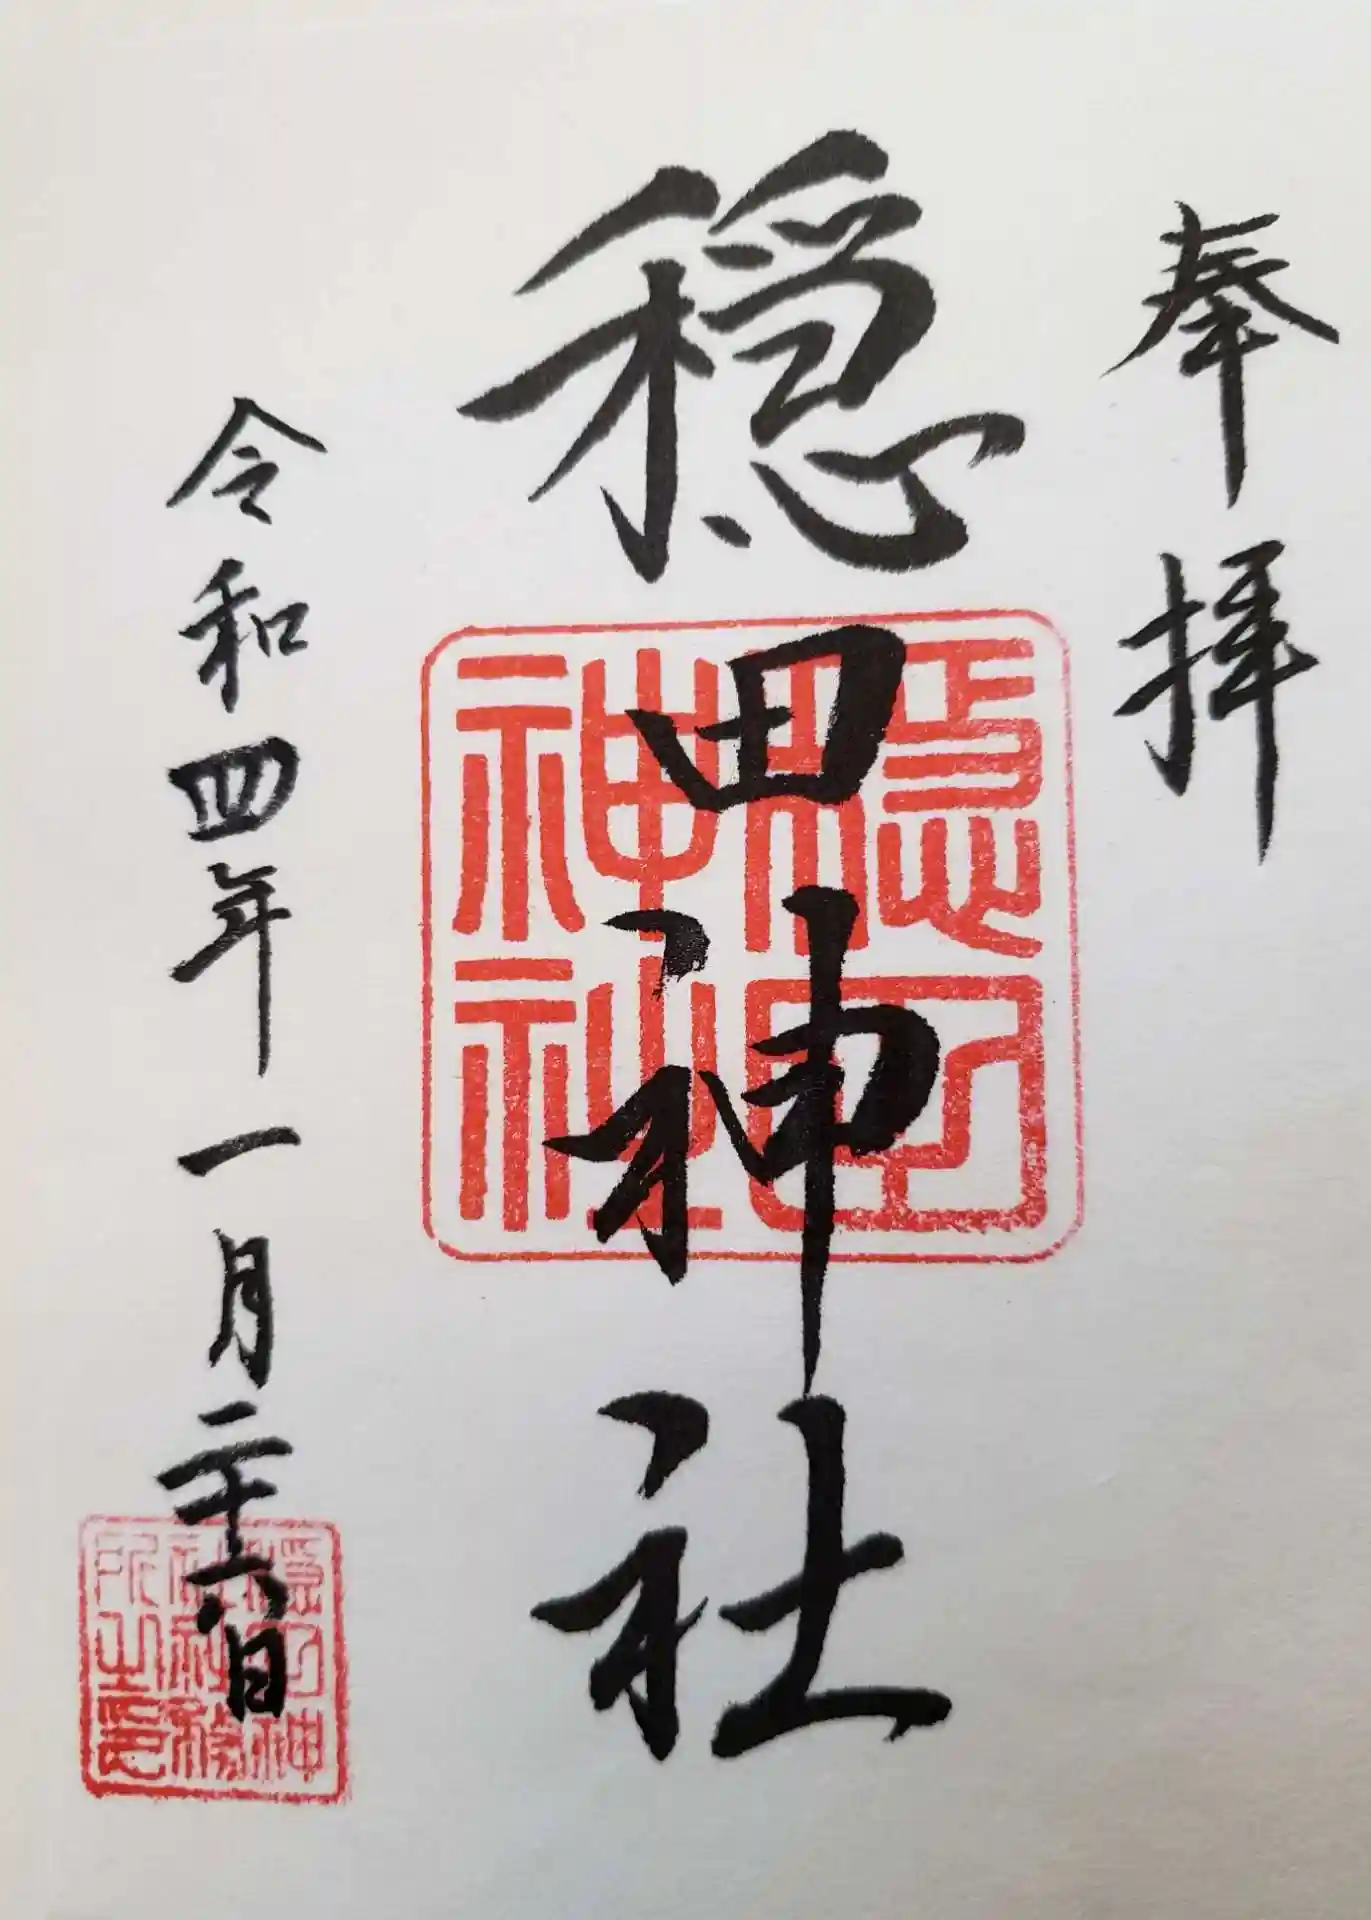 奉拝
穏田神社
穏田神社
令和四年一月二十六日
穏田神社社務所之印